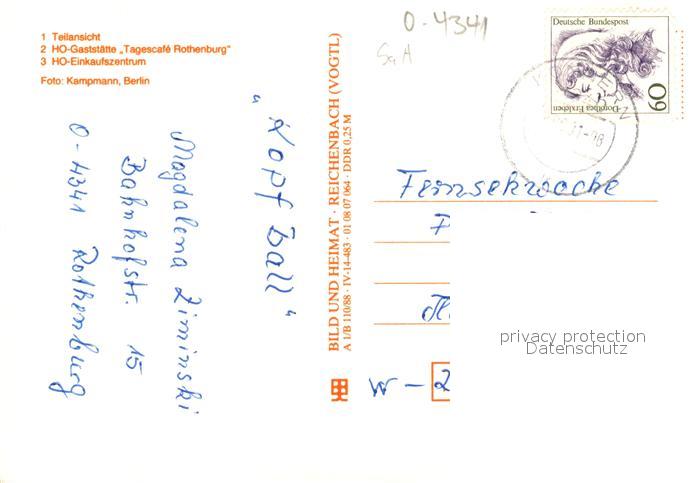 1 Teilansicht
2 HO-Gaststätte „Tagescafé Rothenburg"
3 HO-Einkaufszentrum
Foto: Kampmann, Berlin
"Kopf Ball"
Magdalena Ziminski
Bahnhofstr. 15
O-4341 Rothenburg
BILD UND HEIMAT · REICHENBACH (VOGTL)
A 1/B 110/88 · IV-14-483 · 01 08 07 064 · DDR 0,25 M
O-4341
Deutsche Bundespost
Dorothea Erxleben
60
Fernsehwoche
W-2
privacy protection
Datenschutz